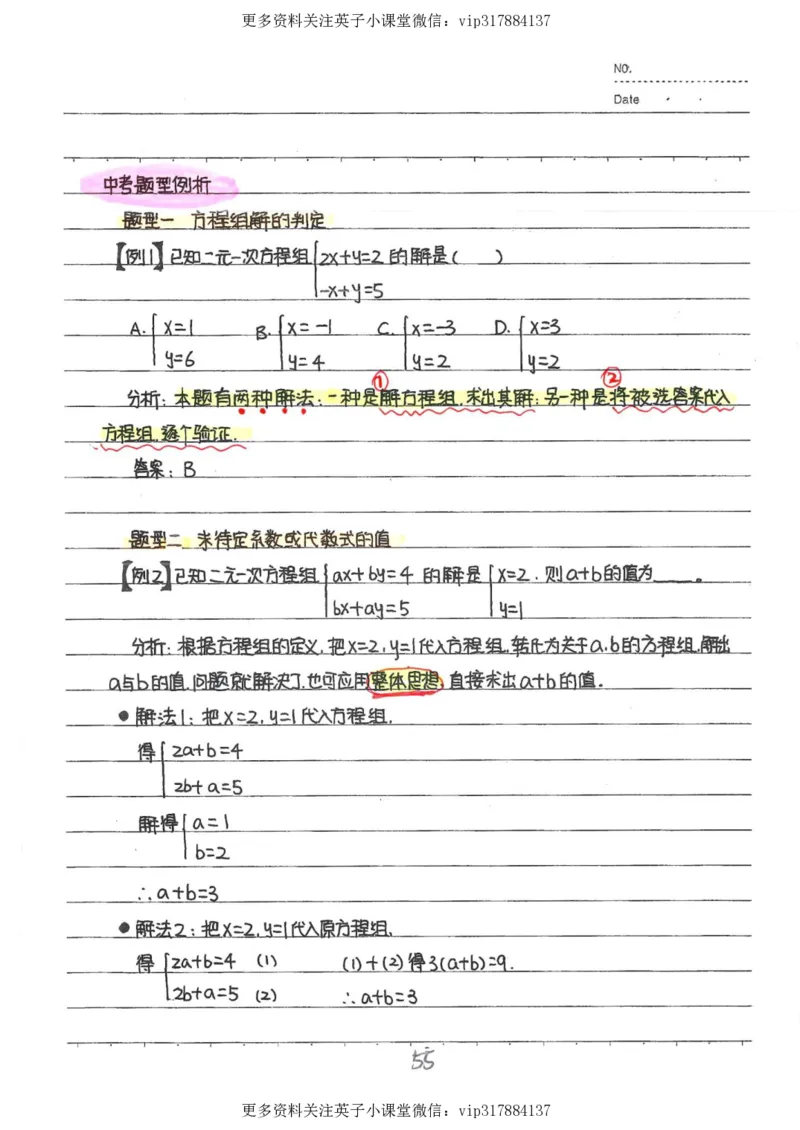 更多资料关注英子小课堂微信：vip317884137
NO.
Date
中考题型例析
题型一 方程组解的判定
【例1】已知二元一次方程组{2x+y=2 的解是( )
-x+y=5
A.{x=1 B.{x=-1 C.{x=-3 D.{x=3
y=6 y=4 y=2 y=2
① ②
分析：本题有两种解法：一种是解方程组，求出其解；另一种是将被选答案代入
方程组，逐个验证.
答案：B
题型二 求待定系数或代数式的值
【例2】已知二元一次方程组{ax+by=4 的解是{x=2，则a+b的值为____。
bx+ay=5 y=1
分析：根据方程组的定义，把x=2，y=1代入方程组，转化为关于a，b的方程组，解出
a与b的值，问题就解决了，也可应用整体思想，直接求出a+b的值.
●解法1：把x=2，y=1代入方程组，
得{2a+b=4
2b+a=5
解得{a=1
b=2
∴a+b=3
●解法2：把x=2，y=1代入原方程组，
得{2a+b=4 (1) (1)+(2)得3(a+b)=9.
2b+a=5 (2) ∴a+b=3
55
更多资料关注英子小课堂微信：vip317884137